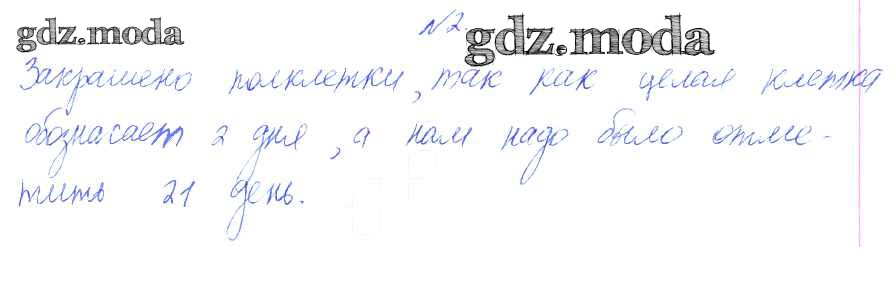 №2.
gdz.moda gdz.moda
Закрашено полклетки, так как целая клетка
обозначает 2 дня, а нам надо было отме-
тить 21 день.